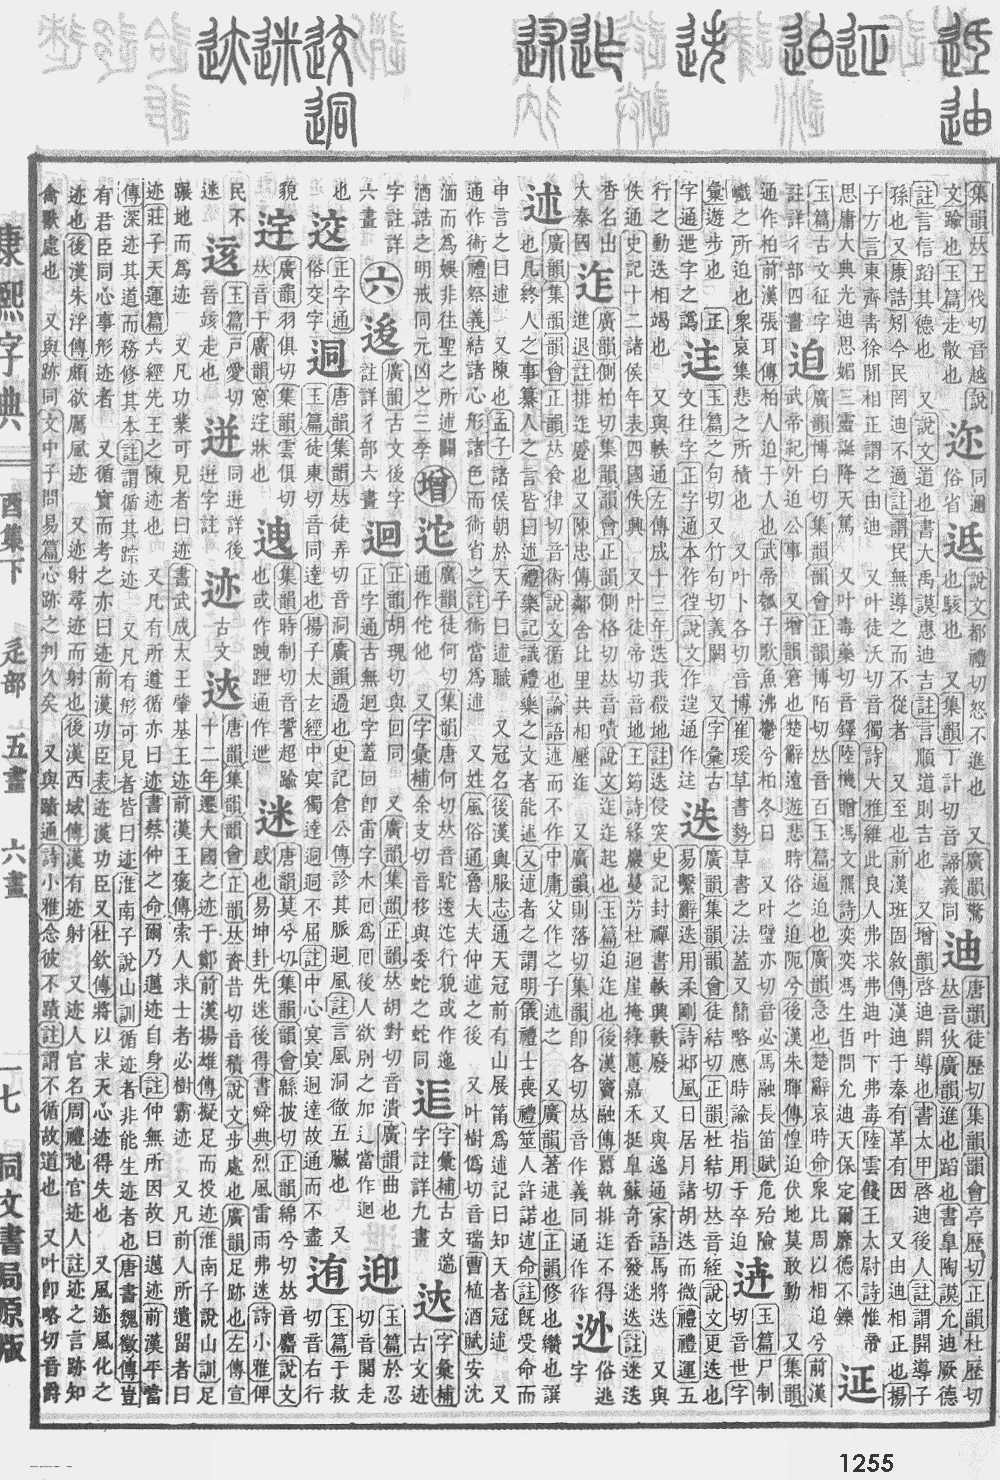 集韻𠀤王伐切音越說
文踰也玉篇走散也
迩
同邇
俗省
說文都禮切怒不進也 又廣韻驚
也駭也 又集韻丁計切音諦義同
迪
唐韻徒歷切集韻韻會亭歷切正韻杜歷切
𠀤音狄廣韻進也蹈也書臯陶謨允迪厥德
註言信蹈其德也 又說文道也書大禹謨惠迪吉註言順道則吉也 又增韻啓迪開導也書太甲啓迪後人註謂開導子
孫也又康誥矧今民罔迪不適註謂民無導之而不從者 又至也前漢班固敘傳漢迪于秦有革有因 又由迪相正也揚
子方言東齊青徐閒相正謂之由迪 又叶徒沃切音獨詩大雅維此良人弗求弗迪叶下弗毒陸雲餞王太尉詩惟帝
思庸大典光迪思媚三靈誕降天篤 又叶毒藥切音鐸陸機贈馮文羆詩奕奕馮生哲問允迪天保定爾靡德不鑠
䢌
玉篇古文征字
註詳彳部四畫
迫
廣韻博白切集韻韻會正韻博陌切𠀤音百玉篇逼迫也廣韻急也楚辭哀時命衆比周以相迫兮前漢
武帝紀外迫公事 又增韻窘也楚辭遠遊悲時俗之迫阨兮後漢朱暉傳惶迫伏地莫敢動 又集韻
通作柏前漢張耳傳柏人迫于人也武帝瓠子歌魚沸鬱兮柏冬日 又叶璧亦切音必馬融長笛賦危殆險
巇之所迫也衆哀集悲之所積也 又叶卜各切音博崔瑗草書勢草書之法蓋又簡略應時諭指用于卒迫
玉篇尸制
切音世字
彙遊步也 正
字通迣字之譌
迬
玉篇之句切又竹句切義闕 又字彙古
文往字正字通本作徃說文作𨓹通作迬
迭
廣韻集韻韻會徒結切正韻杜結切𠀤音絰說文更迭也
易繫辭迭用柔剛詩邶風日居月諸胡迭而微禮禮運五
行之動迭相竭也 又與軼通左傳成十三年迭我殽地註迭侵突史記封禪書軼興軼廢 又與逸通家語馬將迭 又與
佚通史記十二諸侯年表四國佚興 又叶徒帝切音地王筠詩綠巖蔓芳杜迴崖掩綠蕙嘉禾挺阜蘇奇香發迷迭註迷迭
香名出
大秦國
迮
廣韻側柏切集韻韻會正韻側格切𠀤音嘖說文迮迮起也玉篇迫迮也後漢竇融傳囂執排迮不得
進退註排迮蹙也又陳忠傳鄰舍比里共相壓迮 又廣韻則落切集韻卽各切𠀤音作義同通作作
迯
俗逃
字
述
廣韻集韻韻會正韻𠀤食律切音術說文循也論語述而不作中庸父作之子述之 又廣韻著述也正韻修也纘也譔
也凡終人之事纂人之言皆曰述禮樂記識禮樂之文者能述又述者之謂明儀禮士喪禮筮人許諾述命註旣受命而
申言之曰述 又陳也孟子諸侯朝於天子曰述職 又冠名後漢輿服志通天冠前有山展筩爲述記曰知天者冠述 又
通作術禮祭義結諸心形諸色而術省之註術當爲述 又姓風俗通魯大夫仲述之後 又叶樹僞切音瑞曹植酒賦安沈
湎而爲娛非往聖之所述闢
酒誥之明戒同元凶之三季
增
迱
廣韻徒何切集韻唐何切𠀤音駝逶迱行貌或作迤
通作佗他 又字彙補余支切音移與委蛇之蛇同
𨒪
字彙補古文遄
字註詳九畫
字彙補
古文迹
字註詳
六畫
六
逡
廣韻古文後字
註詳彳部六畫
迴
正韻胡瑰切與回同 又廣韻集韻正韻𠀤胡對切音潰廣韻曲也
正字通古無迴字蓋回卽雷字木囘爲囘後人欲別之加辶當作迴
迎
玉篇於忍
切音闉走
也
洨
正字通
俗交字
迵
唐韻集韻𠀤徒弄切音洞廣韻過也史記倉公傳診其脈迵風註言風洞徹五臟也 又
玉篇徒東切音同達也揚子太玄經中冥獨達迵迵不屈註中心冥冥迵達故通而不盡
迶
玉篇于救
切音右行
貌
迂
廣韻羽俱切集韻雲俱切
𠀤音于廣韻窊迂牀也
迣
集韻時制切音誓超踰
也或作跩跇通作迣
迷
唐韻莫兮切集韻韻會緜披切正韻綿兮切𠀤音麛說文
惑也易坤卦先迷後得書舜典烈風雷雨弗迷詩小雅俾
民不
迷
𨒨
玉篇戸愛切
音㱾走也
迸
同逬詳後
逬字註
迹
古文
迏
唐韻集韻韻會正韻𠀤資昔切音積說文步處也廣韻足跡也左傳宣
十二年遷大國之迹于鄭前漢揚雄傳擬足而投迹淮南子說山訓足
蹍地而爲迹 又凡功業可見者曰迹書武成太王肇基王迹前漢王褒傳索人求士者必樹霸迹 又凡前人所遺留者曰
迹莊子天運篇六經先王之陳迹也 又凡有所遵循亦曰迹書蔡仲之命爾乃邁迹自身註仲無所因故曰邁迹前漢平當
傳深迹其道而務修其本註謂循其踪迹 又凡有形可見者皆曰迹淮南子說山訓循迹者非能生迹者也唐書魏徵傳豈
有君臣同心事形迹者 又循實而考之亦曰迹前漢功臣表迹漢功臣又杜欽傳將以求天心迹得失也 又風迹風化之
迹也後漢朱浮傳頗欲厲風迹 又迹射尋迹而射也後漢西域傳漢有迹射 又迹人官名周禮地官迹人註迹之言跡知
禽獸處也 又與跡同文中子問易篇心跡之判久矣 又與蹟通詩小雅念彼不蹟註謂不循故道也 又叶卽略切音爵
康熙字典 酉集下 辵部 五畫 六畫 一七 同文書局原版
1255